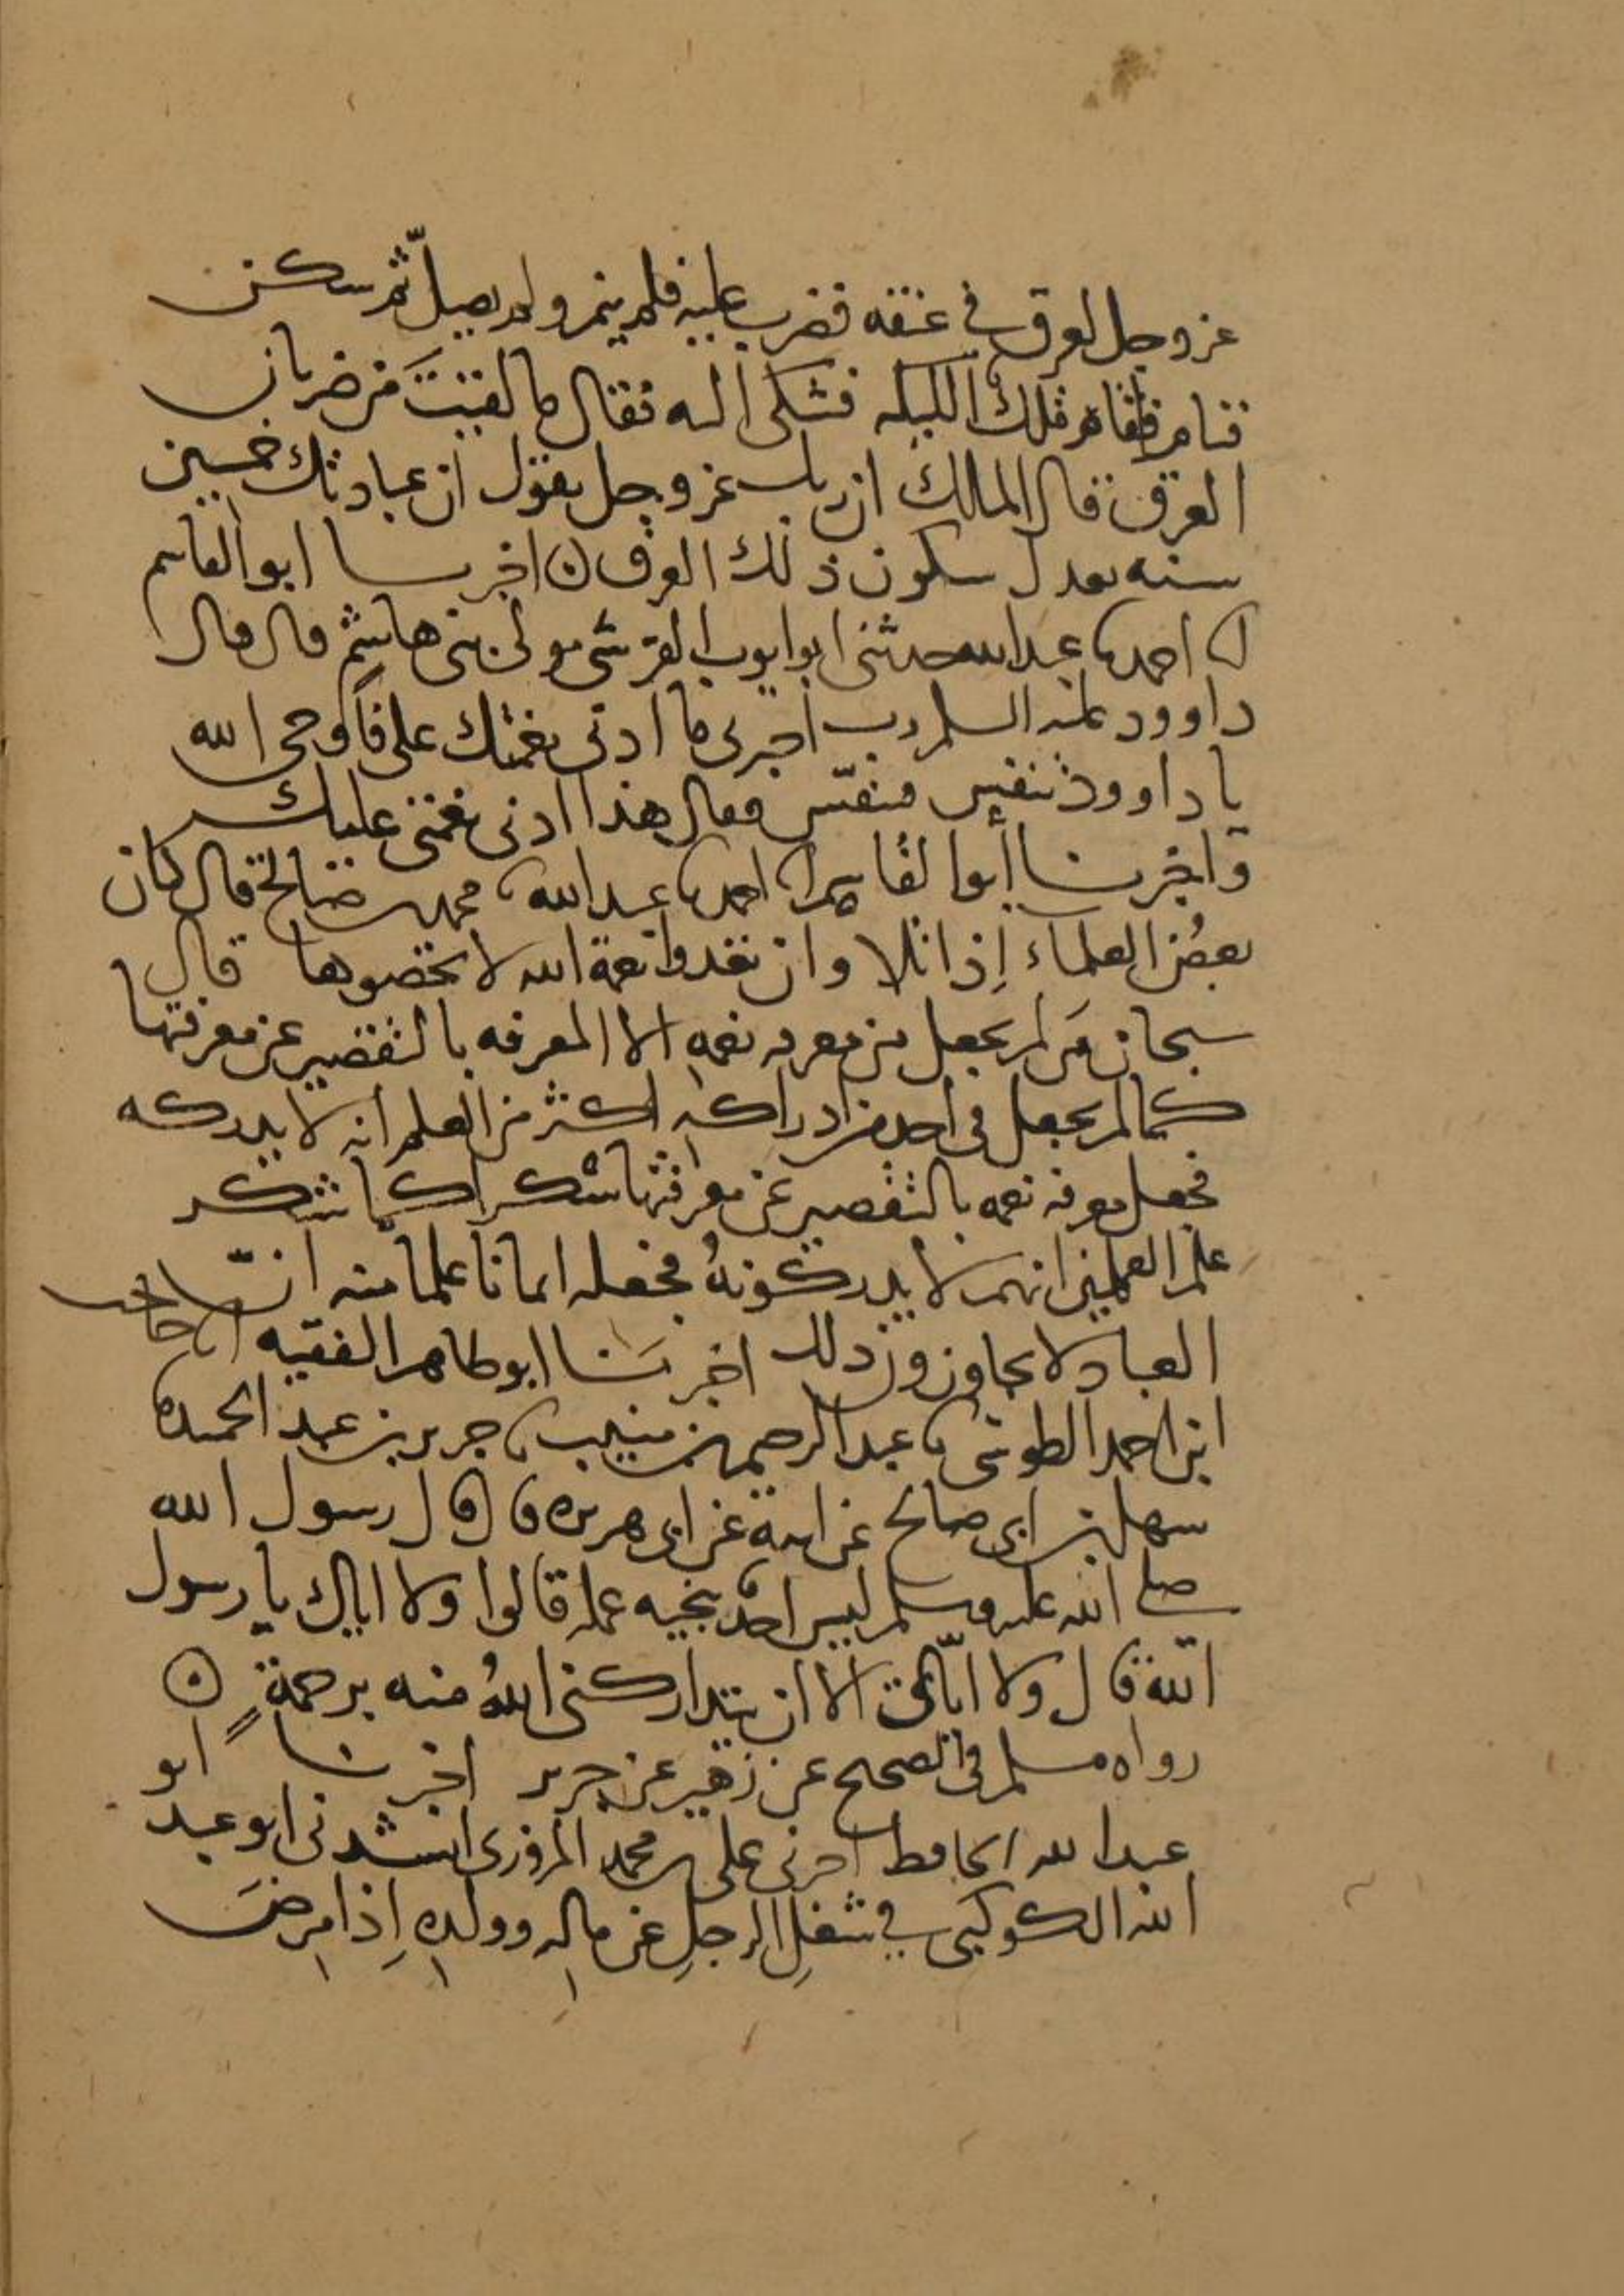 عز وجل لعرق في عنقه فضرب عليه فلم ينم ولم يصل ثم سكن
فنام فقام تلك الليله فشكى اليه فقال ما لقيتَ من ضربان
العرق قال الملك ان ربك عز وجل يقول ان عبادتك خمسين
سنه تعدل سكون ذلك العرق ۞ اخبرنا ابو القاسم
احمد عبد الله حدثني ابو ايوب القرشي مولى بني هاشم قال قال
داوود عليه السلم رب اخبرني ما ادنى نعمتك علي فاوحى الله
يا داوود تنفس فتنفّس فقال هذا ادنى نعمتي عليك
واخبرنا أبو القاسم احمد عبد الله محمد بن صالح قال كان
بعضُ العلماء إذا تلا وان تعدوا نعمة الله لا تحصوها قال
سبحان مَن لم يجعل من معرفه نعمه الا المعرفه بالتقصير عن معرفتها
كما لم يجعل في احد من ادراكه اكثر من العلم انه لا يدركه
فجعل معرفه نعمه بالتقصير عن معرفتها شكرا كما شكر
علم العلمين انهم لا يدركونهُ فجعله ايمانا علما منه انّ
العباد لا يجاوزون ذلك اخبرَنا ابو طاهر الفقيه حاجب
ابن احمد الطوسي عبد الرحيم بن منيب جرير بن عبد الحميد
سهل بن ابي صالح عن ابيه عن ابي هريره قال قال رسول الله
صلى الله عليه وسلم ليس احد ينجيه عمله قالوا ولا اياك يا رسول
الله قال ولا ايّاي الا ان يتداركني اللهُ منه برحمةٍ ۞
رواه مسلم في الصحيح عن زهير عن جرير اخبرنا ابو
عبد الله الحافظ اخبرني علي بن محمد المروزي انشدني ابو عبد
الله الكوكبي في شغلِ الرجلِ عن مالِه وولدِه إذا مرِضَ